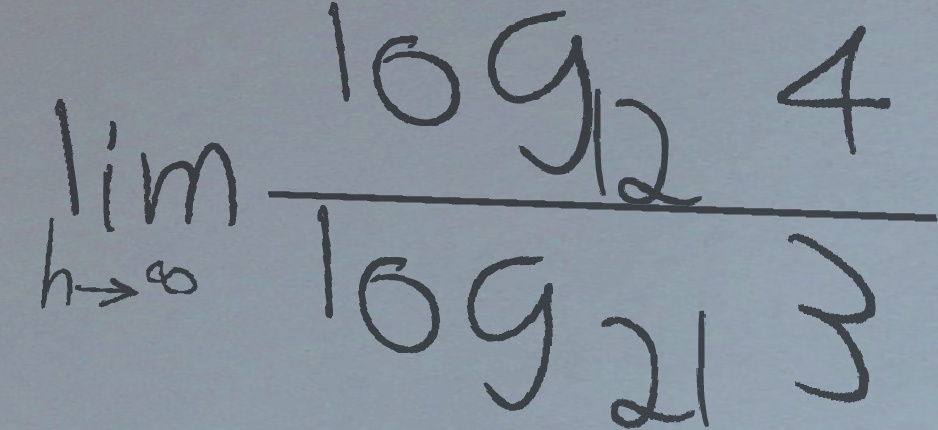 lim log₁₂ 4
h→∞ log₂₁ 3